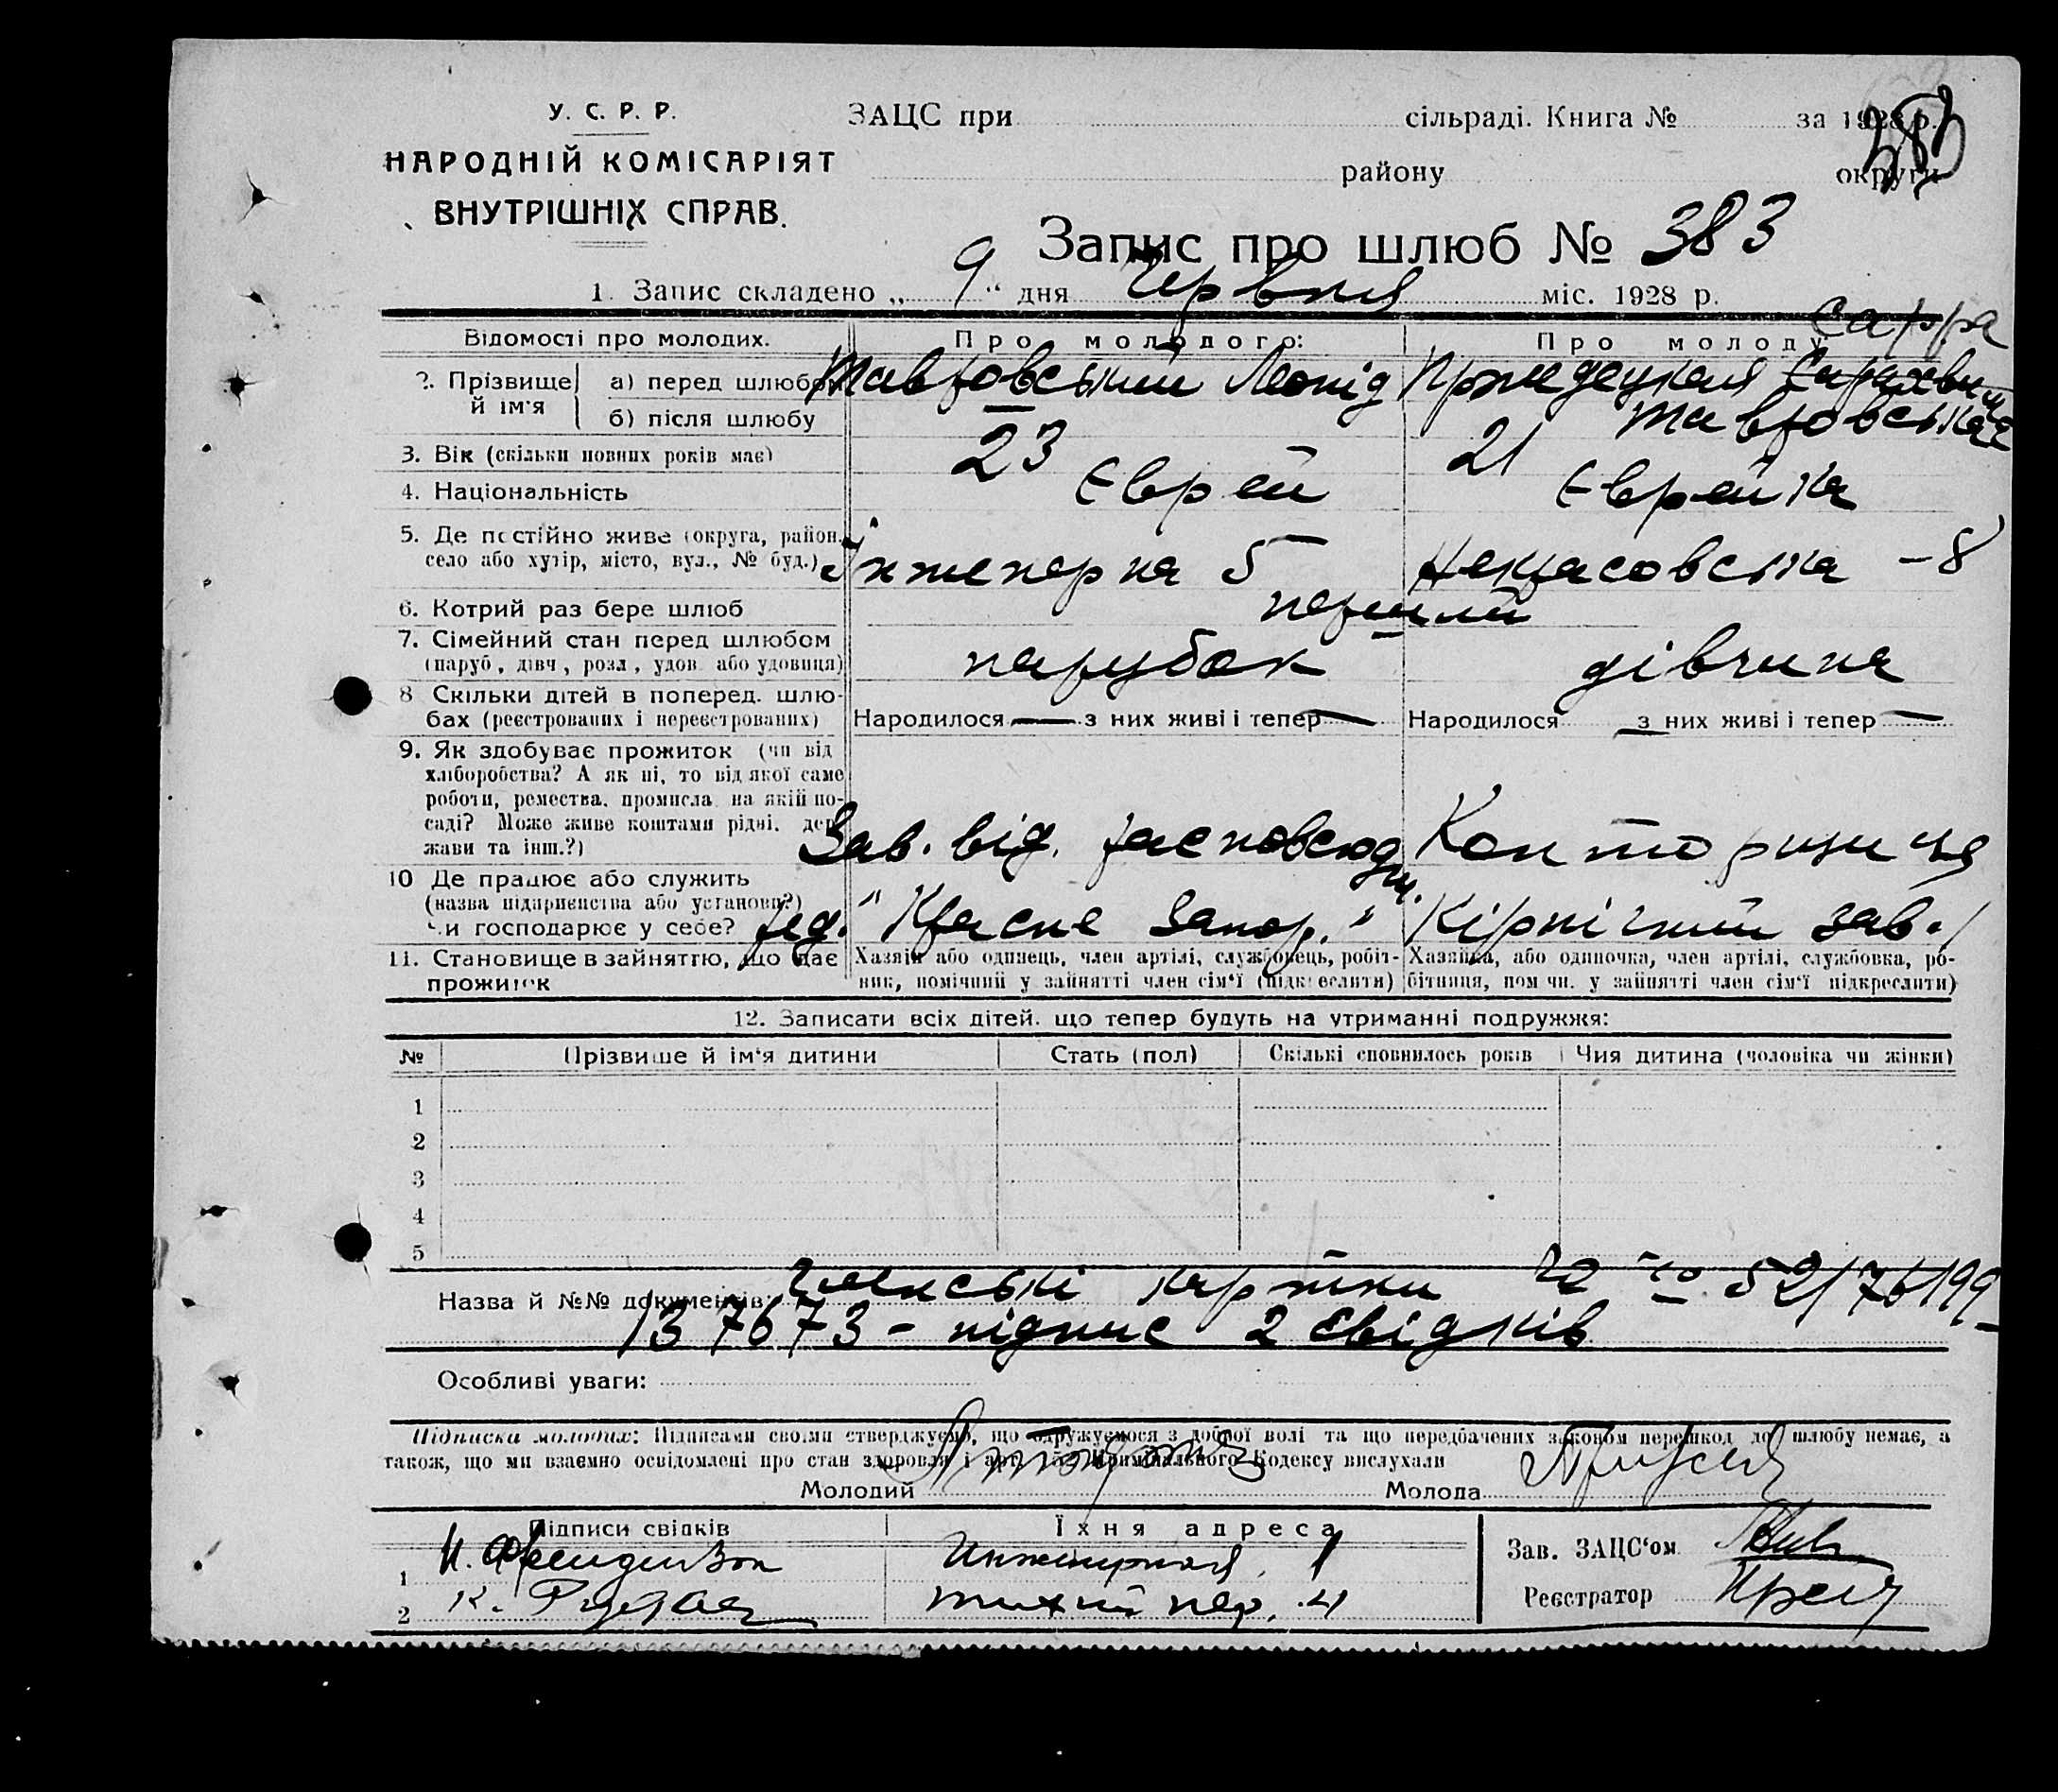 У. С. Р. Р.
НАРОДНІЙ КОМІСАРІЯТ
ВНУТРІШНІХ СПРАВ.
ЗАЦС при сільраді. Книга № за 1928 р.
району округи
383
Запис про шлюб № 383
1. Запис складено „ 9 “ дня Червня міс. 1928 р.
Сарра
Відомості про молодих. Про молодого: Про молоду:
2. Прізвище й ім'я а) перед шлюбом Тавровський Леонід
б) після шлюбу Тавровська
3. Вік (скільки повних років має) 23 21
4. Національність Єврей Єврейка
5. Де постійно живе (округа, район, село або хутір, місто, вул., № буд.) Інженерна 5 Некрасовська – 8
6. Котрий раз бере шлюб перший
7. Сімейний стан перед шлюбом (паруб., дівч., розл., удов. або удовиця) парубок дівчина
8 Скільки дітей в поперед. шлюбах (реєстрованих і нереєстрованих) Народилося — з них живі і тепер — Народилося — з них живі і тепер —
9. Як здобуває прожиток (чи від хліборобства? А як ні, то від якої саме роботи, ремества, промисла, на якій посаді? Може живе коштами рідні, держави та інш.?) Зав. від. расповсюдж. Контормщиця
10 Де працює або служить (назва підприємства або установи?) чи господарює у себе? ред. "Красне Запор." Кірпічний зав.
11. Становище в зайняттю, що дає прожиток Хазяїн або одинець, член артілі, службовець, робітник, помічний у зайнятті член сім'ї (підкреслити) Хазяйка, або одиночка, член артілі, службовка, робітниця, помічн. у зайнятті член сім'ї підкреслити)
12. Записати всіх дітей, що тепер будуть на утриманні подружжя:
№ Прізвище й ім'я дитини Стать (пол) Скількі сповнилось років Чия дитина (чоловіка чи жінки)
1
2
3
4
5
Назва й №№ документів: членські картки
137673 – підпис 2 свідків
Особливі уваги:
Підписка молодих: Підписами своїми стверджуємо, що одружуємося з доброї волі та що передбачених законом перешкод до шлюбу немає, а
також, що ми взаємно освідомлені про стан здоровля і арт. Кримінального Кодексу вислухали
Молодий Молода
Підписи свідків Їхня адреса
1 Инженерная, 1
2 тихий пер. 4
Зав. ЗАЦС'ом
Реєстратор